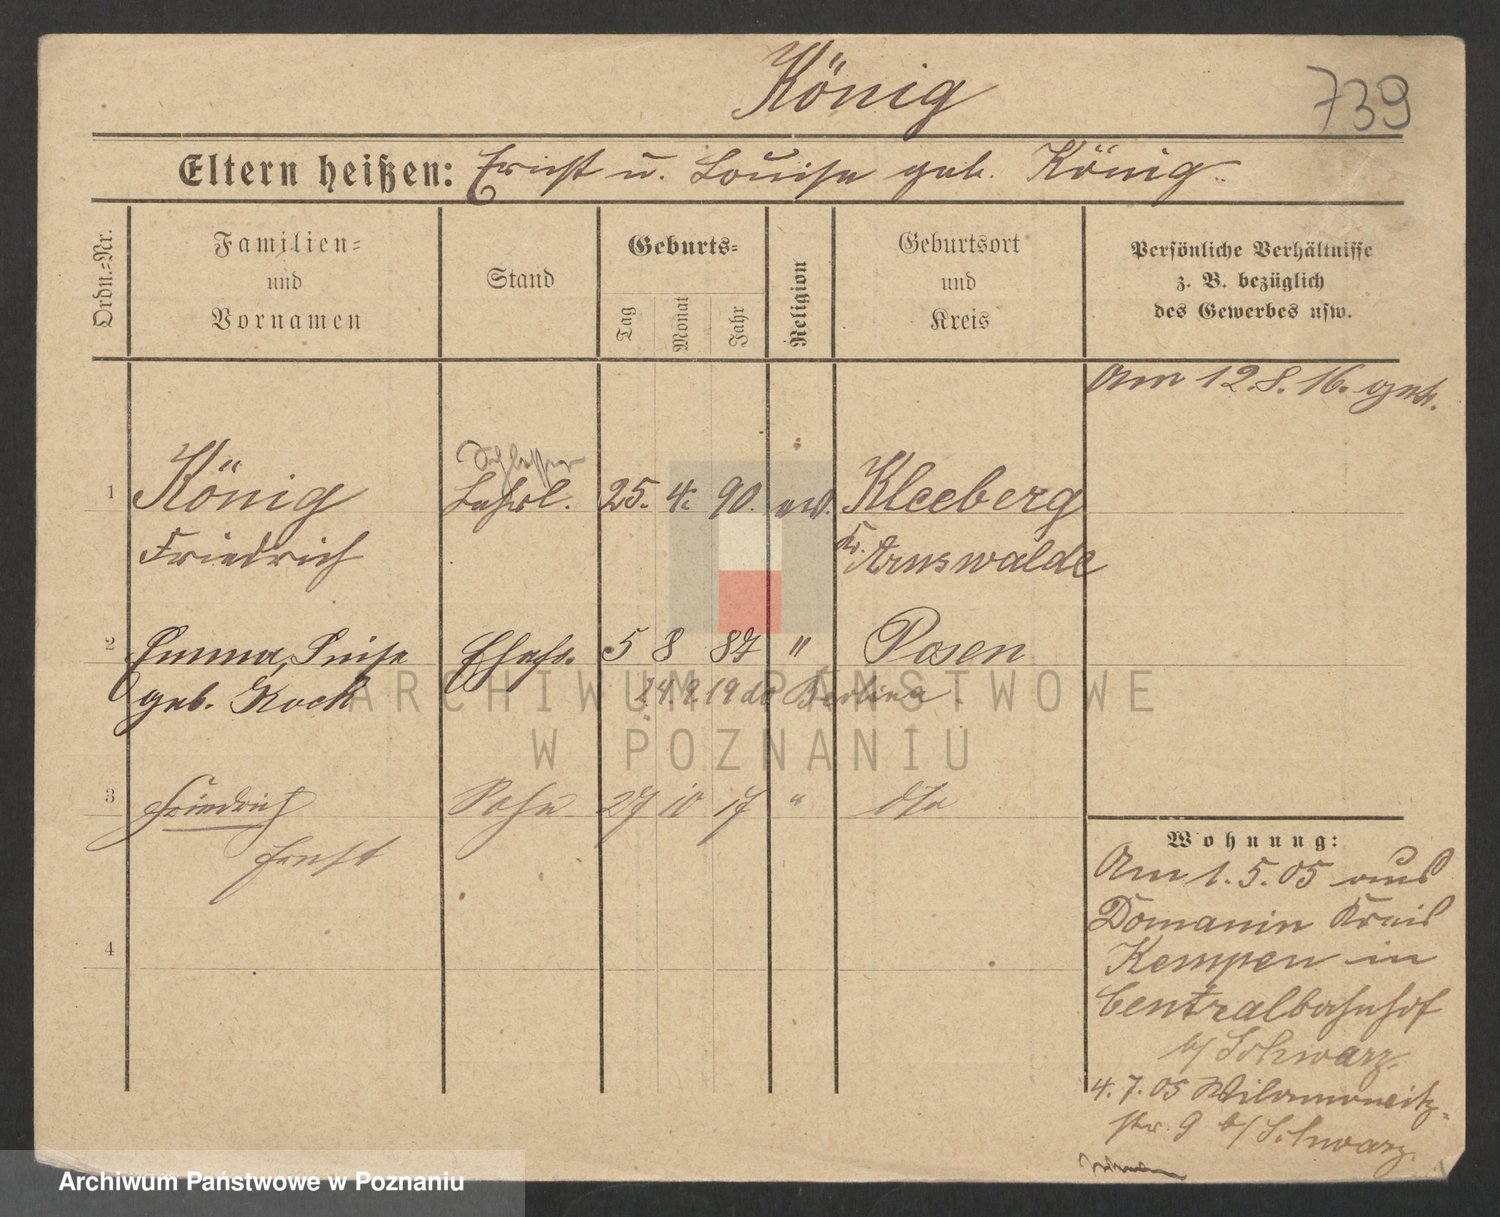 König
739
Eltern heißen: Ernst u. Louise geb. König
Ordn.-Nr.
Familien-
und
Vornamen
Stand
Geburts-
Tag
Monat
Jahr
Religion
Geburtsort
und
Kreis
Persönliche Verhältnisse
z. B. bezüglich
des Gewerbes usw.
Am 12.8.16. geh.
Schlosser
1 König Lehrl. 25. 4. 90. ev. Kleeberg
Friedrich Kr. Arnswalde
2 Emma, Luise Ehefr. 5 8 87 " Posen
geb. Kock 24.9.19 do Berlin
3 Friedrich Sohn 27 10 17 " dto
Ernst
4
Wohnung:
Am 1.5.05 aus
Domanin Kreis
Kempen in
Centralbahnhof
b/ Schwarz.
4.7.05 Wilamowitz-
str. 9 b/ Schwarz.
ARCHIWUM PAŃSTWOWE
W POZNANIU
Archiwum Państwowe w Poznaniu